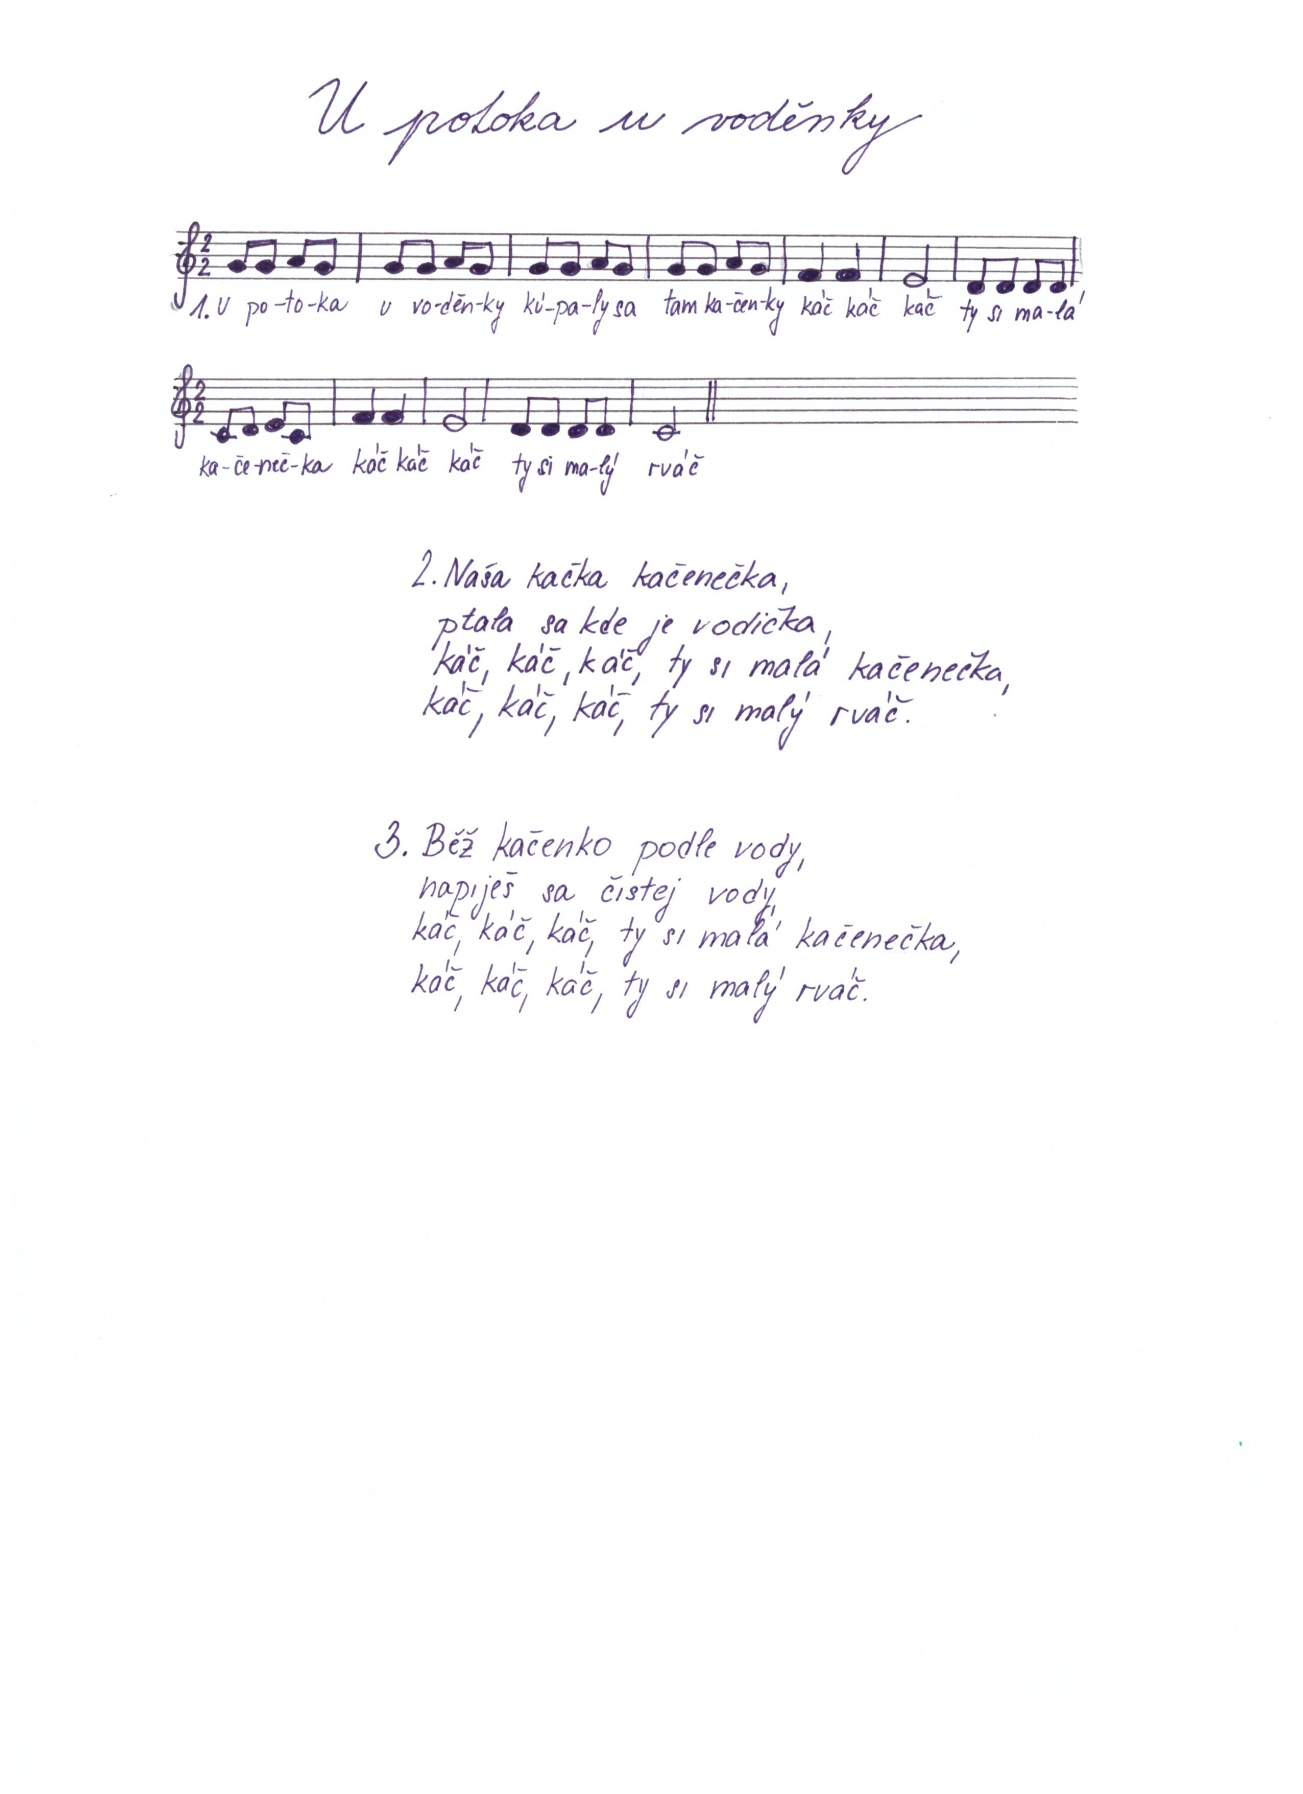 U potoka u voděnky
1. U po-to-ka u vo-děn-ky kú-pa-ly sa tam ka-čen-ky káč káč káč ty si ma-łá
ka-če-neč-ka káč káč káč ty si ma-łý rváč
2. Naša kačka kačenečka,
ptała sa kde je vodička,
káč, káč, káč, ty si małá kačenečka,
káč, káč, káč, ty si małý rváč.
3. Běž kačenko podle vody,
napiješ sa čistej vody,
káč, káč, káč, ty si małá kačenečka,
káč, káč, káč, ty si małý rváč.